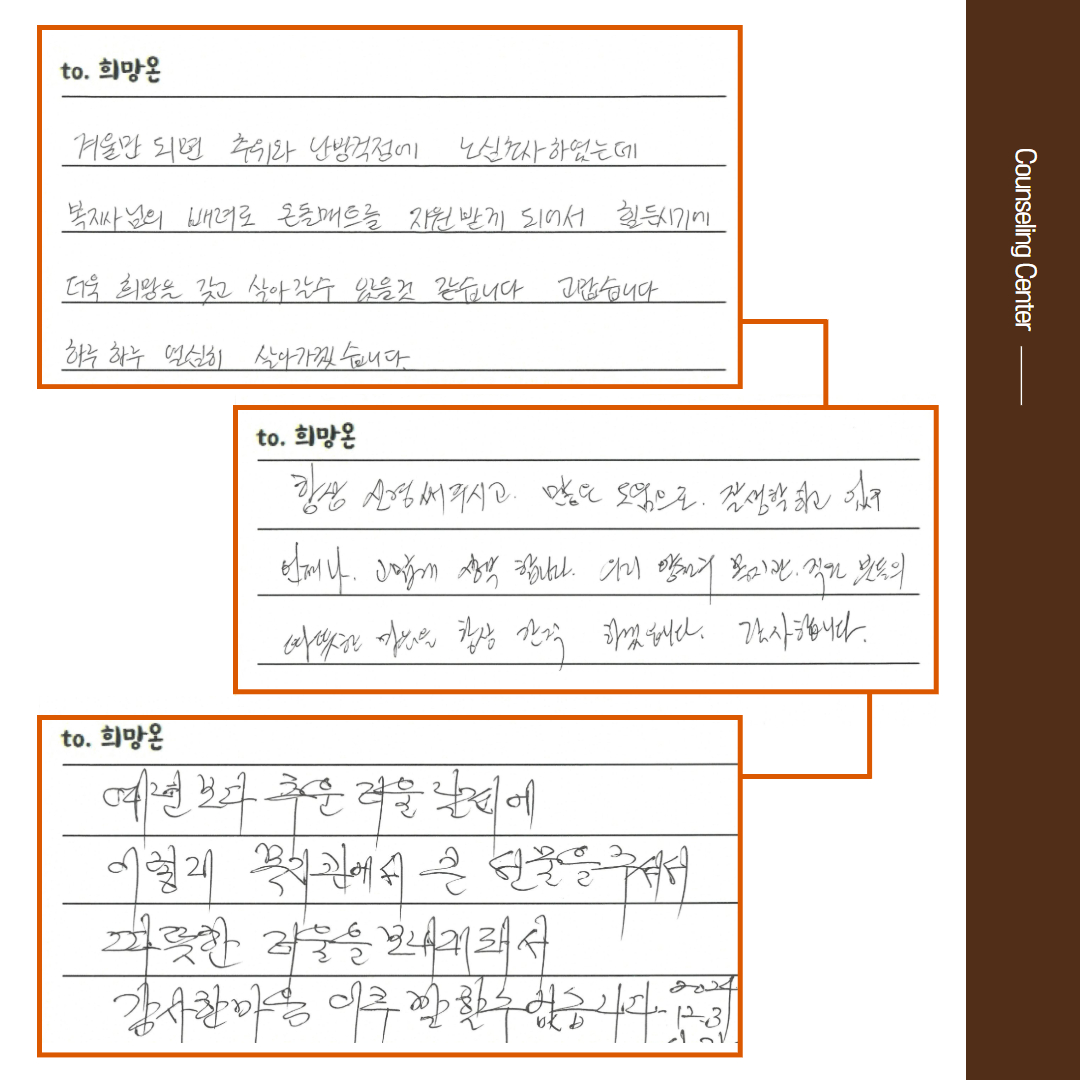 to. 희망온
겨울만 되면 추위와 난방걱정에 노심초사하였는데
복지사님의 배려로 온돌매트를 지원받게 되어서 힘든시기에
더욱 희망을 갖고 살아갈수 있을것 같습니다 고맙습니다
하루하루 열심히 살아가겠습니다.
to. 희망온
항상 신경써주시고. 많은 도움으로. 잘생활하고 있어
언제나. 고맙게 생각 합니다. 우리 복지관. 직원 분들의
따뜻한 마음을 항상 간직 하겠습니다. 감사합니다.
to. 희망온
예년보다 추운 겨울날씨에
이렇게 복지관에서 큰 선물을주셔서
따뜻한 겨울을보내게돼서
감사한마음 이루말할수없습니다. 2024
12.31
Counseling Center